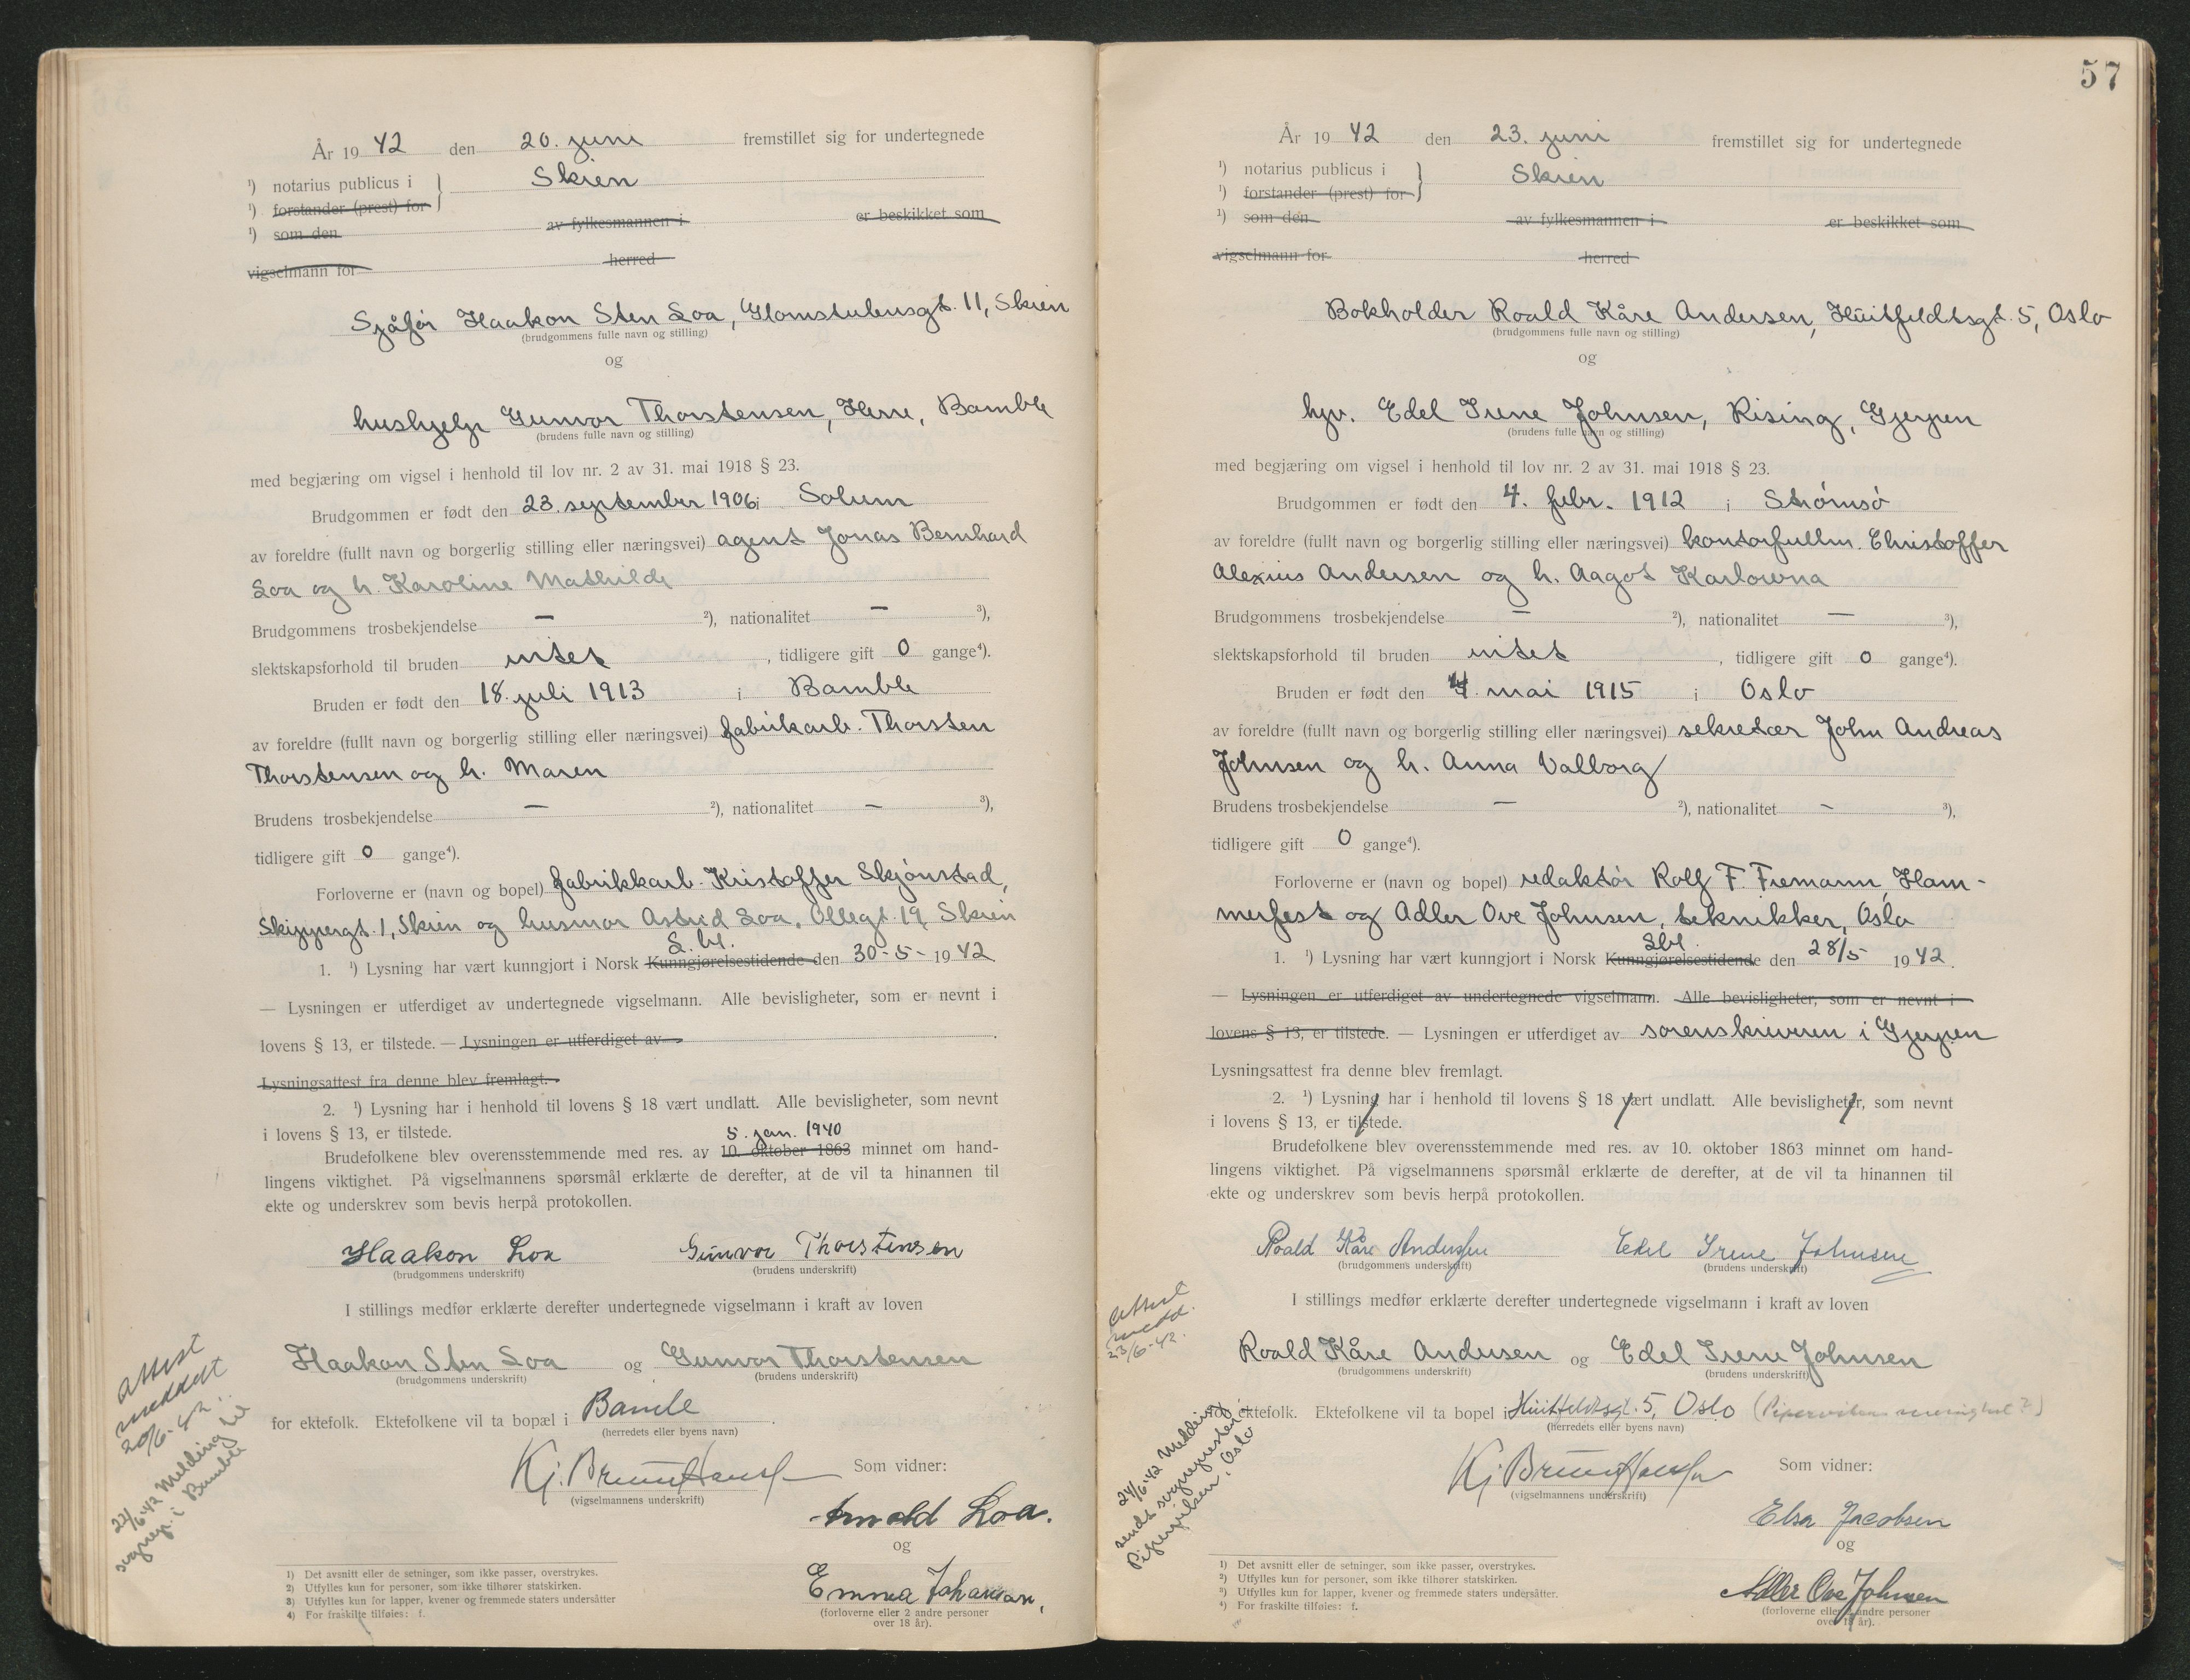 År 19 42 den 20. juni fremstillet sig for undertegnede
¹) notarius publicus i } Skien
¹) forstander (prest) for
¹) som den av fylkesmannen i er beskikket som
vigselmann for herred
Sjåfør Haakon Sten Loa, Glomstubensgt. 11, Skien
(brudgommens fulle navn og stilling)
og
hushjelp Gunvor Thorstensen, Herre, Bamble
(brudens fulle navn og stilling)
med begjæring om vigsel i henhold til lov nr. 2 av 31. mai 1918 § 23.
Brudgommen er født den 23. september 1906 i Solum
av foreldre (fullt navn og borgerlig stilling eller næringsvei) agent Jonas Bernhard
Loa og h. Karoline Mathilde
Brudgommens trosbekjendelse — ²), nationalitet — ³),
slektskapsforhold til bruden intet , tidligere gift 0 gange⁴).
Bruden er født den 18. juli 1913 i Bamble
av foreldre (fullt navn og borgerlig stilling eller næringsvei) fabrikarb. Thorsten
Thorstensen og h. Maren
Brudens trosbekjendelse — ²), nationalitet — ³),
tidligere gift 0 gange⁴).
Forloverne er (navn og bopel) fabrikkarb. Kristoffer Skjønstad,
Skippergt. 1, Skien og husmor Astrid Loa, Ollegt. 19, Skien
S. bl.
1. ¹) Lysning har vært kunngjort i Norsk Kunngjørelsestidende den 30-5- 19 42.
— Lysningen er utferdiget av undertegnede vigselmann. Alle bevisligheter, som er nevnt i
lovens § 13, er tilstede. — Lysningen er utferdiget av .
Lysningsattest fra denne blev fremlagt.
2. ¹) Lysning har i henhold til lovens § 18 vært undlatt. Alle bevisligheter, som nevnt
i lovens § 13, er tilstede.
5. jan. 1940
Brudefolkene blev overensstemmende med res. av 10. oktober 1863 minnet om hand-
lingens viktighet. På vigselmannens spørsmål erklærte de derefter, at de vil ta hinannen til
ekte og underskrev som bevis herpå protokollen.
Haakon Loa Gunvor Thorstensen
(brudgommens underskrift) (brudens underskrift)
I stillings medfør erklærte derefter undertegnede vigselmann i kraft av loven
Haakon Sten Loa og Gunvor Thorstensen
(brudgommens underskrift) (brudens underskrift)
for ektefolk. Ektefolkene vil ta bopæl i Bamle .
(herredets eller byens navn)
Kj. Bruun Hansen Som vidner:
(vigselmannens underskrift)
Arnold Loa.
og
Emma Johansen,
(forloverne eller 2 andre personer
over 18 år).
attest
meddelt
20/6-42.
22/6-42 Melding til
sognepr. i Bamble
1) Det avsnitt eller de setninger, som ikke passer, overstrykes.
2) Utfylles kun for personer, som ikke tilhører statskirken.
3) Utfylles kun for lapper, kvener og fremmede staters undersåtter
4) For fraskilte tilføies: f.
57
År 19 42 den 23. juni fremstillet sig for undertegnede
¹) notarius publicus i } Skien
¹) forstander (prest) for
¹) som den av fylkesmannen i er beskikket som
vigselmann for herred
Bokholder Roald Kåre Andersen, Huitfeldtsgt. 5, Oslo
(brudgommens fulle navn og stilling)
og
hjv. Edel Irene Johnsen, Rising, Gjerpen
(brudens fulle navn og stilling)
med begjæring om vigsel i henhold til lov nr. 2 av 31. mai 1918 § 23.
Brudgommen er født den 4. febr. 1912 i Strømsø
av foreldre (fullt navn og borgerlig stilling eller næringsvei) kontorfullm. Christoffer
Alexius Andersen og h. Aagot Karlowna
Brudgommens trosbekjendelse — ²), nationalitet — ³),
slektskapsforhold til bruden intet , tidligere gift 0 gange⁴).
Bruden er født den 4. mai 1915 i Oslo
av foreldre (fullt navn og borgerlig stilling eller næringsvei) sekretær John Andreas
Johnsen og h. Anna Valborg
Brudens trosbekjendelse — ²), nationalitet — ³),
tidligere gift 0 gange⁴).
Forloverne er (navn og bopel) redaktør Rolf F. Fremann, Ham-
merfest og Adler Ove Johnsen, teknikker, Oslo
Sbl.
1. ¹) Lysning har vært kunngjort i Norsk Kunngjørelsestidende den 28/5 19 42.
— Lysningen er utferdiget av undertegnede vigselmann. Alle bevisligheter, som er nevnt i
lovens § 13, er tilstede. — Lysningen er utferdiget av sorenskriveren i Gjerpen
Lysningsattest fra denne blev fremlagt.
2. ¹) Lysning har i henhold til lovens § 18 vært undlatt. Alle bevisligheter, som nevnt
i lovens § 13, er tilstede.
Brudefolkene blev overensstemmende med res. av 10. oktober 1863 minnet om hand-
lingens viktighet. På vigselmannens spørsmål erklærte de derefter, at de vil ta hinannen til
ekte og underskrev som bevis herpå protokollen.
Roald Kåre Andersen Edel Irene Johnsen
(brudgommens underskrift) (brudens underskrift)
I stillings medfør erklærte derefter undertegnede vigselmann i kraft av loven
Roald Kåre Andersen og Edel Irene Johnsen
(brudgommens underskrift) (brudens underskrift)
for ektefolk. Ektefolkene vil ta bopel i Huitfeldtsgt. 5, Oslo (Pipervikens menighet?)
(herredets eller byens navn)
Kj Bruun Hansen Som vidner:
(vigselmannens underskrift)
Elsa Jacobsen
og
Adler Ove Johnsen
(forloverne eller 2 andre personer
over 18 år).
attest
medd.
23/6-42.
24/6-42 Melding
sendt sognepresten i
Piperviken, Oslo
1) Det avsnitt eller de setninger, som ikke passer, overstrykes.
2) Utfylles kun for personer, som ikke tilhører statskirken.
3) Utfylles kun for lapper, kvener og fremmede staters undersåtter.
4) For fraskilte tilføies: f.